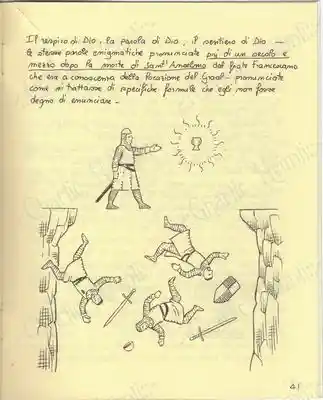 Il respiro di Dio, la parola di Dio, il sentiero di Dio —
le stesse parole enigmatiche pronunciate più di un secolo e
mezzo dopo la morte di Sant'Anselmo dal frate Francescano
che era a conoscenza della Vocazione del Graal - pronunciate
come si trattasse di specifiche formule che egli non fosse
degno di enunciare -
41